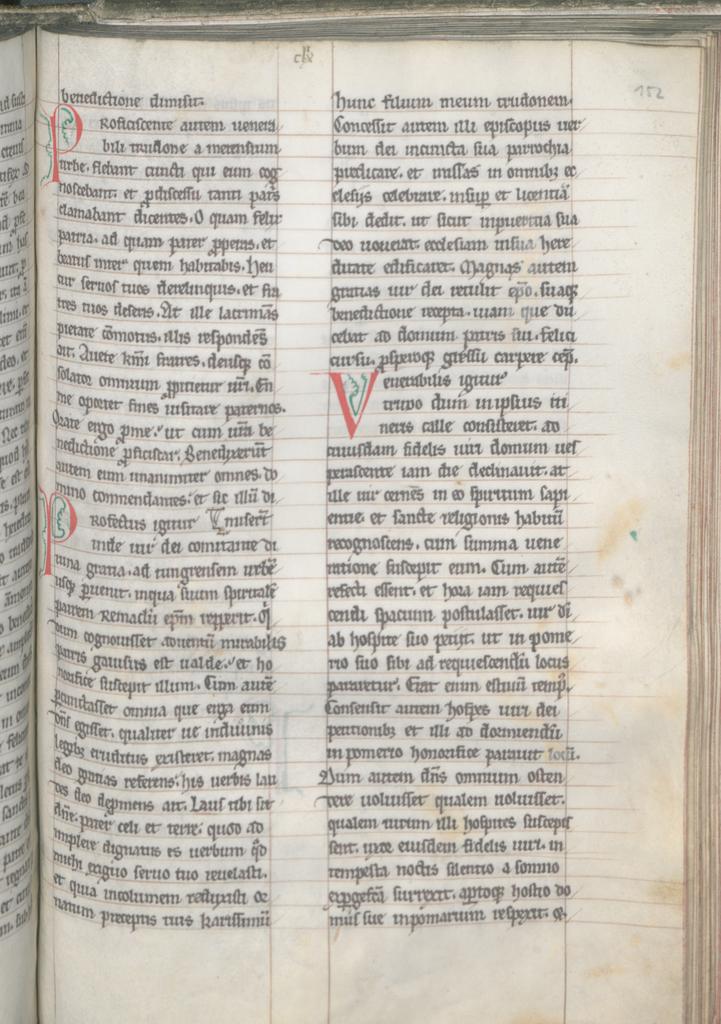 clix
152
benedictione dimisit.
Proficiscente autem venera
bili trudone a metensium
urbe. flebant cuncti qui eum cog
noscebant. et p discessu tanti patris
clamabant dicentes. O quam felix
patria. ad quam pater properas. et
beatus inter quem habitabis. Heu
cur servos tuos derelinquis. et fra
tres tuos deseris. At ille lacrimas
pietate comotus. illis respondens
ait. Avete kmi fratres. deusque co
solator omnium ppicietur nri. En
me oportet fines visitare paternos.
Orate ergo p me. ut cum vra be
nedictione pficiscar. Benedixerunt
autem eum unanimiter omnes. do
mino commendantes. et sic illu di
miserunt
Profectus igitur
inde vir dei comitante di
vina gratia. ad tungrensem urbe
usq pvenit. in qua suum spirituale
patrem Remaclu epm repperit. Q
dum cognovisset adventu mirabilis
patris gavisus est valde. et ho
norifice suscepit illum. Cum aute
pcunctasset omnia que erga eum
dns egisset. qualiter ve in divinis
legibz eruditus existeret. magnas
deo gratias referens. his verbis lau
des deo depmens ait. Laus tibi sit
dne. pater celi et terre. quod ad
implere dignatus es verbum qd
michi exiguo servo tuo revelasti.
et quia incolumem reduxisti or
natum preceptis tuis karissimu
hunc filium meum trudonem.
Concessit autem illi episcopus ver
bum dei in cuncta sua parrochia
predicare. et missas in omnibz ec
clesiis celebrare. insup et licentia
sibi dedit. ut sicut in pueritia sua
deo voverat. ecclesiam in sua here
ditate edificaret. Magnas autem
gratias vir dei retulit epo. suaq
benedictione recepta. viam que du
cebat ad domum patris sui. felici
cursu. psperoq gressu carpere cep.
Venerabilis igitur
trudo dum in ipsius iti
neris calle consisteret. ad
cuiusdam fidelis viri domum ves
perascente iam die declinavit. at
ille vir cernes in eo spiritum sapi
entie. et sancte religionis habitu
recognoscens. cum summa vene
ratione suscepit eum. Cum aute
refecti essent. et hora iam requies
cendi spacium postulasset. vir di
ab hospite suo petiit. ut in pome
rio suo sibi ad requiescendu locus
pararetur. Erat enim estivu temp.
Consensit autem hospes viri dei
petitionibz et illi ad dormiendu
in pomerio honorifice paravit locu.
Dum autem dns omnium osten
dere voluisset qualem voluisset.
qualem virum illi hospites suscepis
sent. uxor eiusdem fidelis viri. in
tempesta noctis silentio a somno
expgefcta surrexit. aptoq hostio do
mus sue in pomarium respexit. et